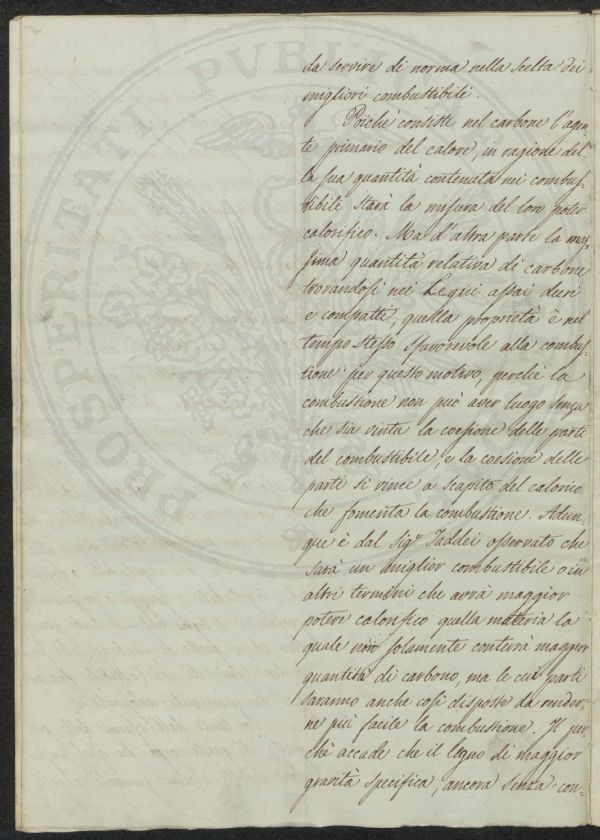 da servire di norma nella scelta dei
migliori combustibili.
Poiché consiste nel carbone l'agen-
te primario del calore, in ragione del-
la sua quantità contenuta nei combus-
tibili starà la misura del loro poter
calorifico. Ma d'altra parte la mas-
sima quantità relativa di carbone
trovandosi nei Legni assai duri
e compatti, quella proprietà è nel
tempo stesso sfavorevole alla combus-
tione per questo motivo, perchè la
combustione non può aver luogo senza
che sia vinta la coesione delle parti
del combustibile, e la coesione delle
parti si vince a scapito del calorico
che fomenta la combustione. Adun-
que è dal Sigr Taddei osservato che
sarà un miglior combustibile o in
altri termini che avrà maggior
potere calorifico quella materia la
quale non solamente conterrà maggior
quantità di carbono, ma le cui parti
saranno anche così disposte da render-
ne più facile la combustione. Il per-
chè accade che il legno di maggior
gravità specifica, ancora senza con-
PROSPERITATI PVBLI